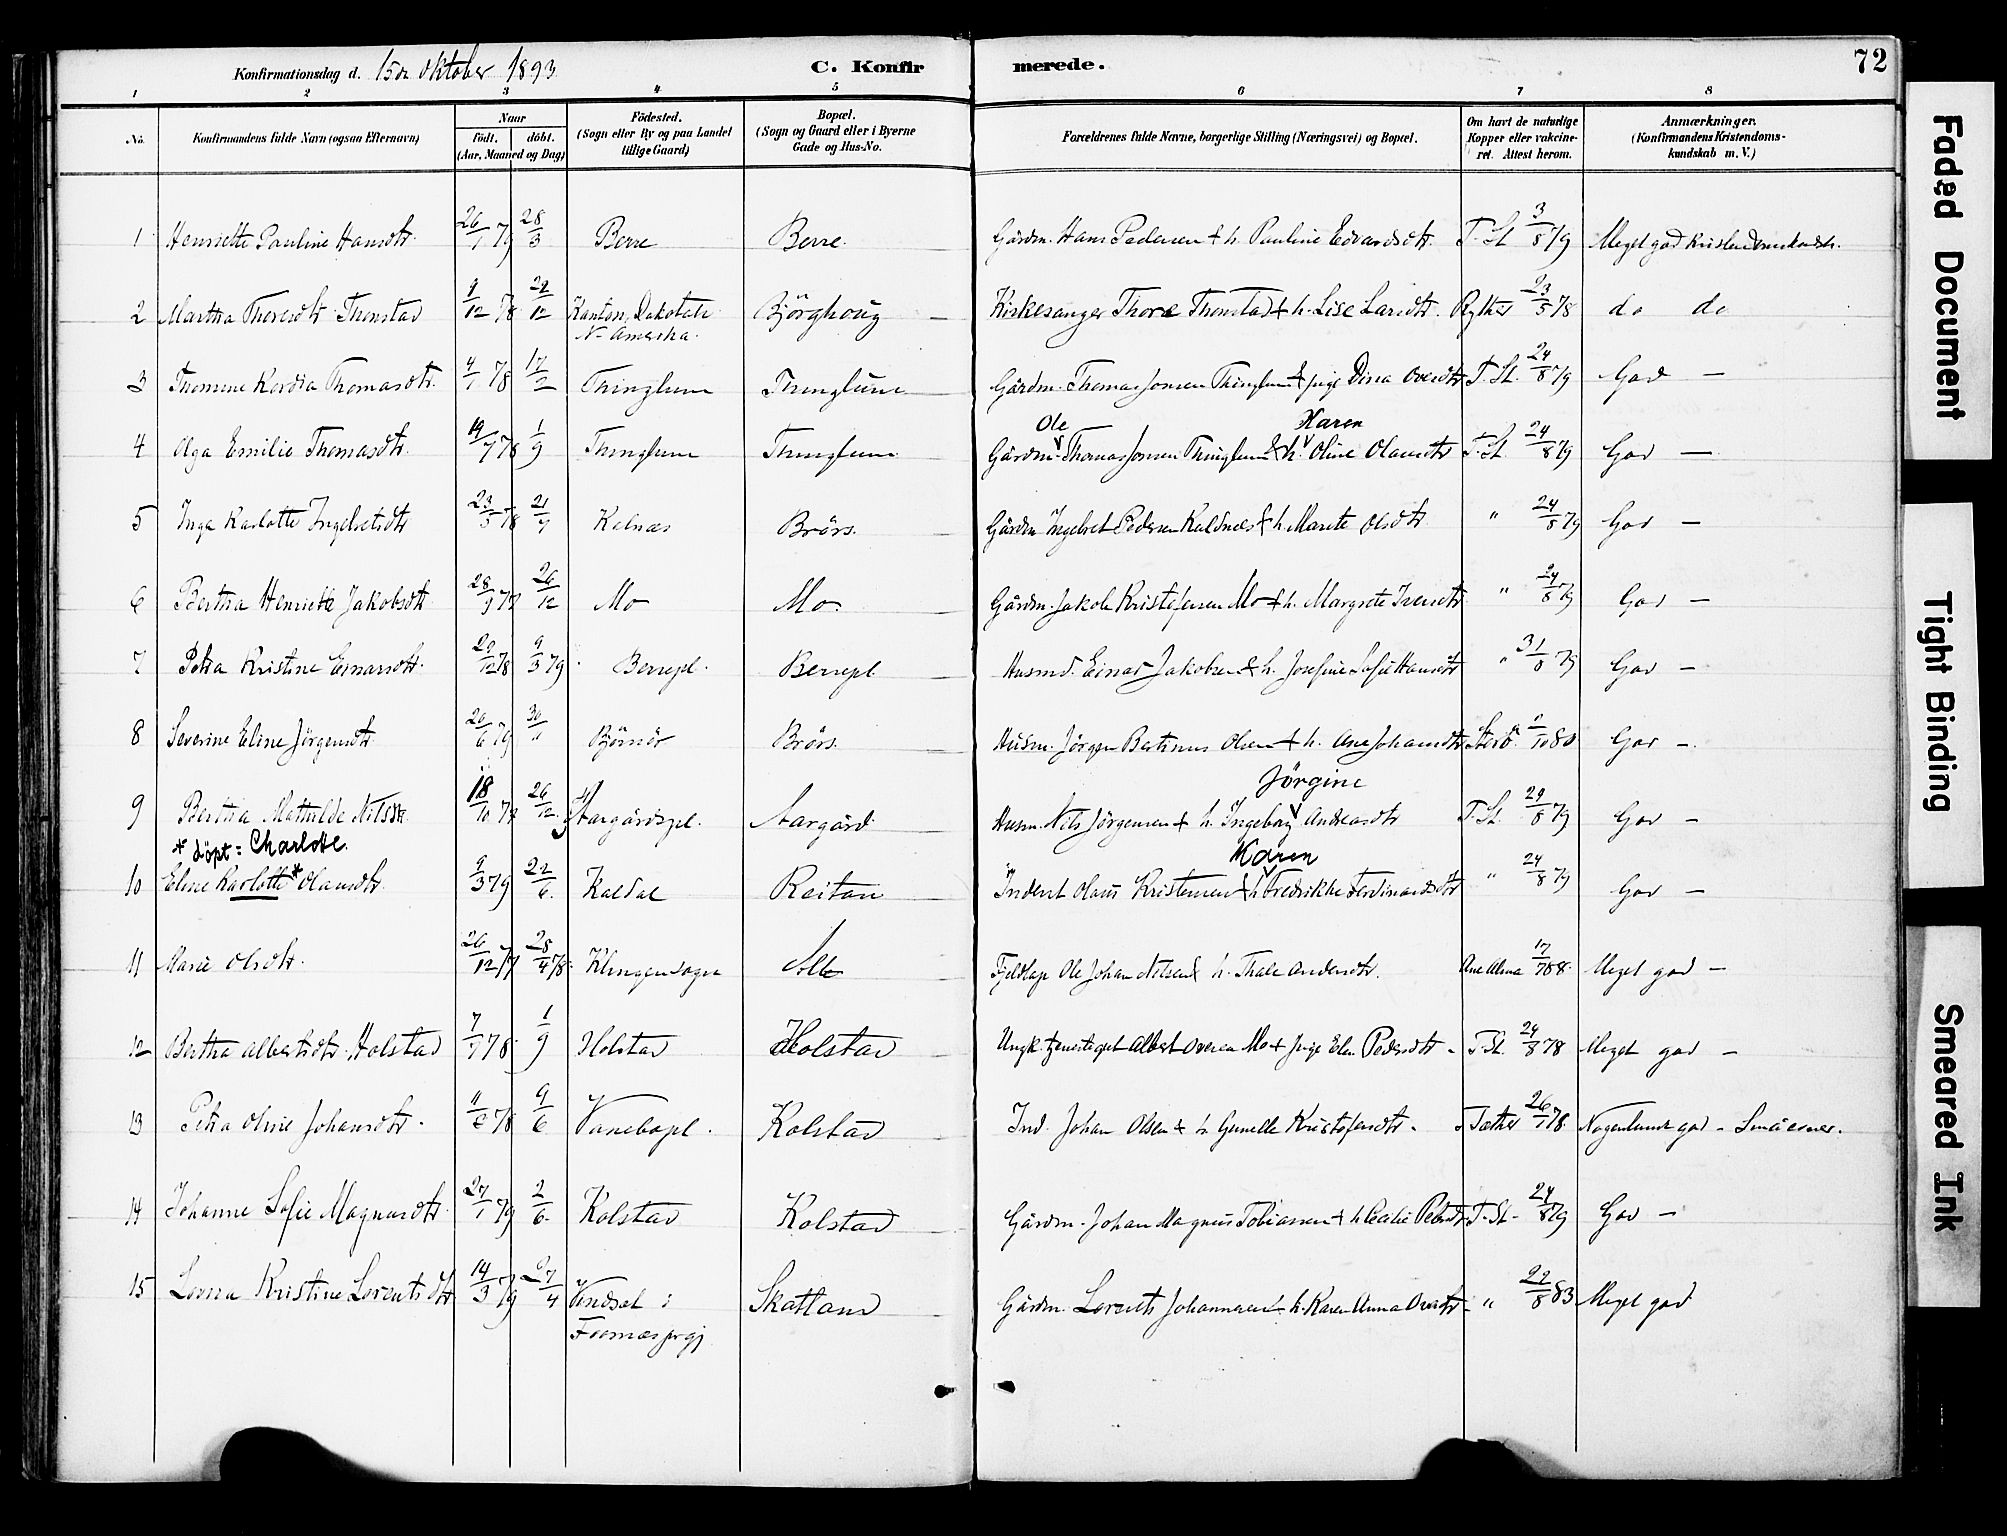 Konfirmationsdag d. 15de Oktober 1893
C. Konfirmerede.
72
1 2 3 4 5 6 7 8
No.
Konfirmandens fulde Navn (ogsaa Efternavn)
Naar
födt. döbt.
(Aar, Maaned og Dag)
Födested.
(Sogn eller By og paa Landet tillige Gaard)
Bopæl.
(Sogn og Gaard eller i Byerne Gade og Hus-No.
Forældrenes fulde Navne, borgerlige Stilling (Næringsvei) og Bopæl.
Om havt de naturlige Kopper eller vakcineret. Attest herom.
Anmærkninger.
(Konfirmandens Kristendomskundskab m. V.)
1 Henriette Pauline Hansdtr. 26/1 79 28/3 Berre Berre. Gårdm. Hans Pedersen & h. Pauline Edvardsdtr. T. St. 3/8 79 Meget god Kristendomskndsk.
2 Martha Thoresdtr. Thonstad 9/12 78 29/12 Kanton, Dakotah N. Amerika. Björghoug Kirkesanger Thore Thonstad & h. Lise Larsdtr. Rygther 23/5 78 do do
3 Thomine Kordia Thomasdtr. 4/1 78 17/2 Thinglum Thinglum Gårdm. Thomas Jonsen Thinglum & pige Dina Ovesdtr T. St. 24/8 79 God —
4 Olga Emilie Thomasdtr. 19/7 78 1/9 Thinglum Thinglum Gårdm. Ole Thomas Jonsen Thinglum & h. Karen Oline Olausdtr T. St. 24/8 79 God —
5 Inga Karlotte Ingebretsdtr 23/5 78 21/7 Kalnæs Brörs. Gårdm Ingebret Pedersen Kaldnæs & h. Marete Olsdtr " 24/8 79 God —
6 Bertha Henriette Jakobsdtr 28/9 78 26/12 Mo Mo. Gårdm. Jakob Kristofersen Mo & h. Margrete Iversdtr " 24/8 79 God —
7 Petra Kristine Einarsdtr. 29/12 78 9/3 79 Berrepl. Berrepl. Husmd. Einar Jakobsen & h. Josefine Sofie Hansdtr " 31/8 79 God —
8 Severine Eline Jörgensdtr 20/6 79 30/" Björnör Brörs. Husm. Jörgen Bertinus Olsen & h. Ane Johansdtr 2/10 80 God —
9 Bertha Mathilde Nilsdtr. 18/10 78 26/12 Aargårdspl. Aargård Husm. Nils Jörgensen & h. Ingeborg Jörgine Andreasdtr T. St. 29/8 79 God —
* döpt: Charlotte.
10 Eline Karlotte* Olausdtr. 9/3 79 22/6 Kaldal Reitan Indent Olaus Kristensen & h. Karen Fredrikke Ferdinandsdtr " 24/8 79 God —
11 Marie Olsdtr. 26/12 77 28/4 78 Klingensogn Fjeldlap Ole Johan Nilsen & h. Thale Andersdtr. 17/7 88 Meget god —
12 Bertha Albertsdtr. Holstad 7/7 78 1/9 Holstad Holstad Ungk. tjenestegut Albert Ovesen Mo & pige Elen Pedersdtr T. St. 24/8 78 Meget god —
13 Petra Oline Johansdtr. 11/2 78 9/6 Vanebopl. Kolstad Ind. Johan Olsen & h Gunelle Kristofersdtr. Tæther 26/7 78 Nogenlunde god
14 Johanne Sofie Magnusdtr. 27/1 79 2/6 Kolstad Kolstad Gårdm. Johan Magnus Tobiassen & h Cecilie Petersdtr T. St. 24/8 79 God —
15 Lovisa Kristine Lorentsdtr 14/3 79 27/4 Vindsnl i Fosnæs prgj Skatland Gårdm. Lorents Johannesen & h. Karen Anna Ovesdtr " 22/8 83 Meget god
Faded Document
Tight Binding
Smeared Ink